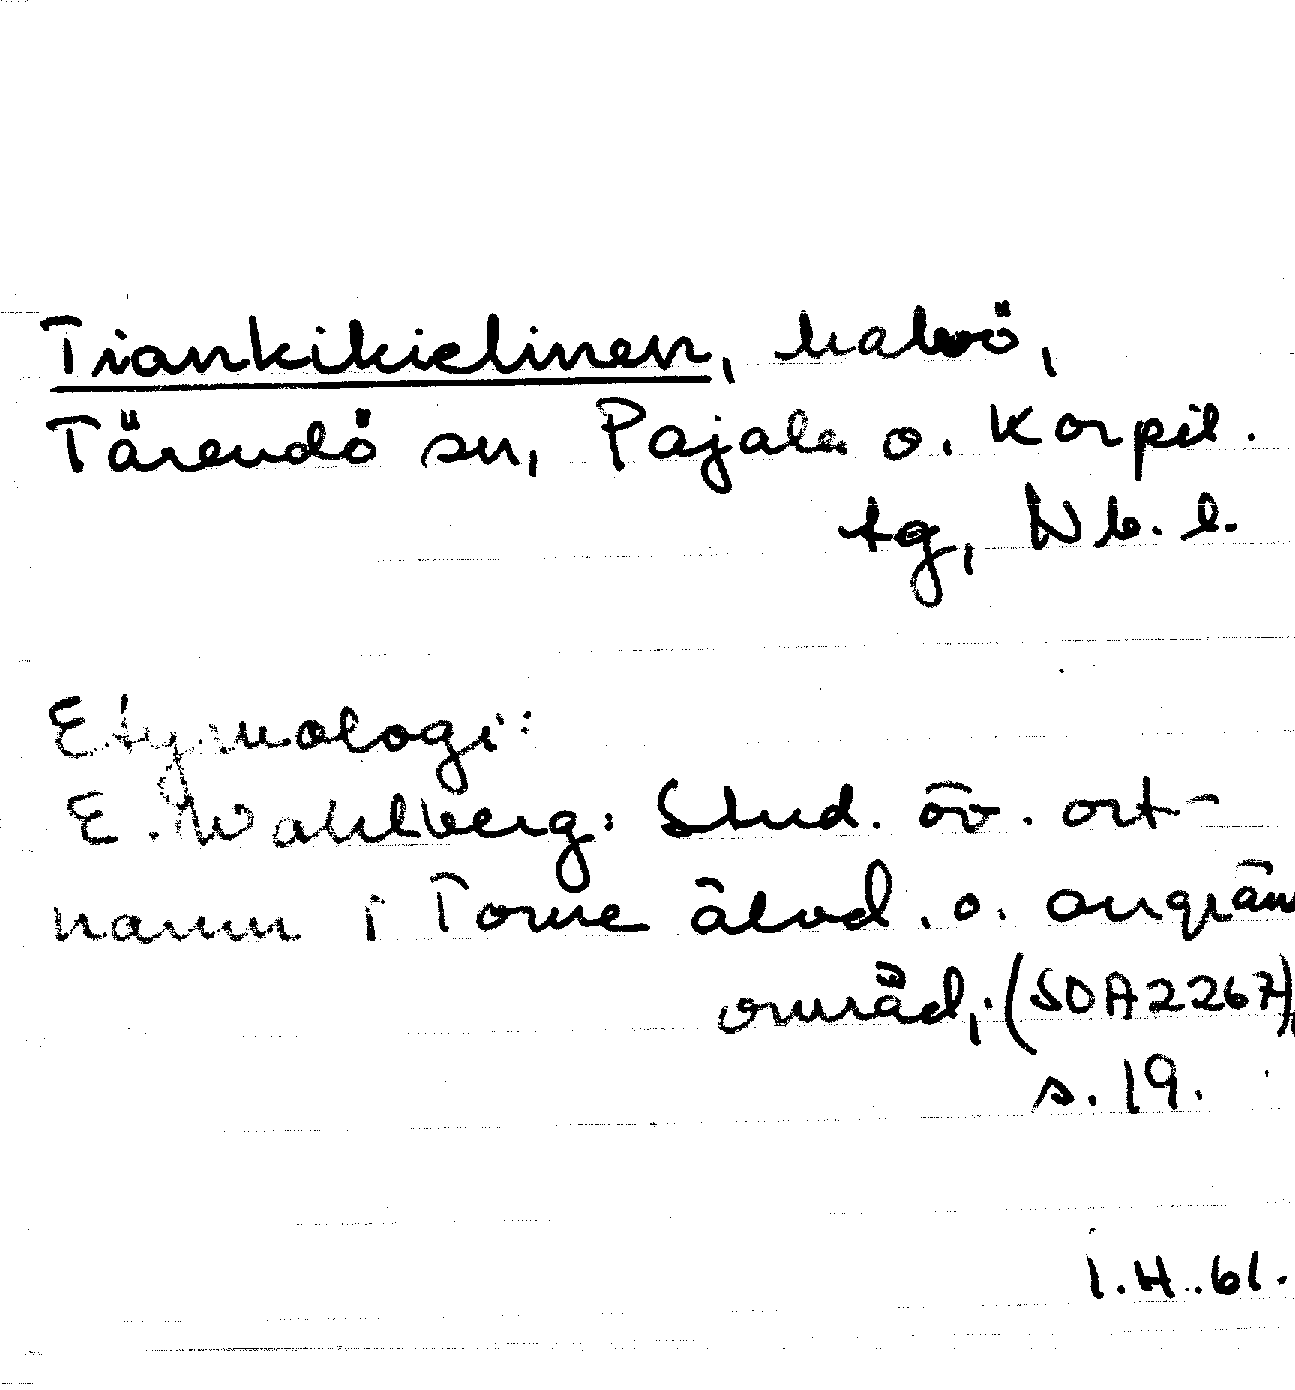 Tiankikielinen, halvö,
Tärendö sn, Pajala o. Korpil.
tg, Nb. l.
Etymologi:
E. Wahlberg: Stud. öv. ort-
namn i Torne älvd. o. angrän
områd, (SOA2267),
s. 19.
I.H.61.